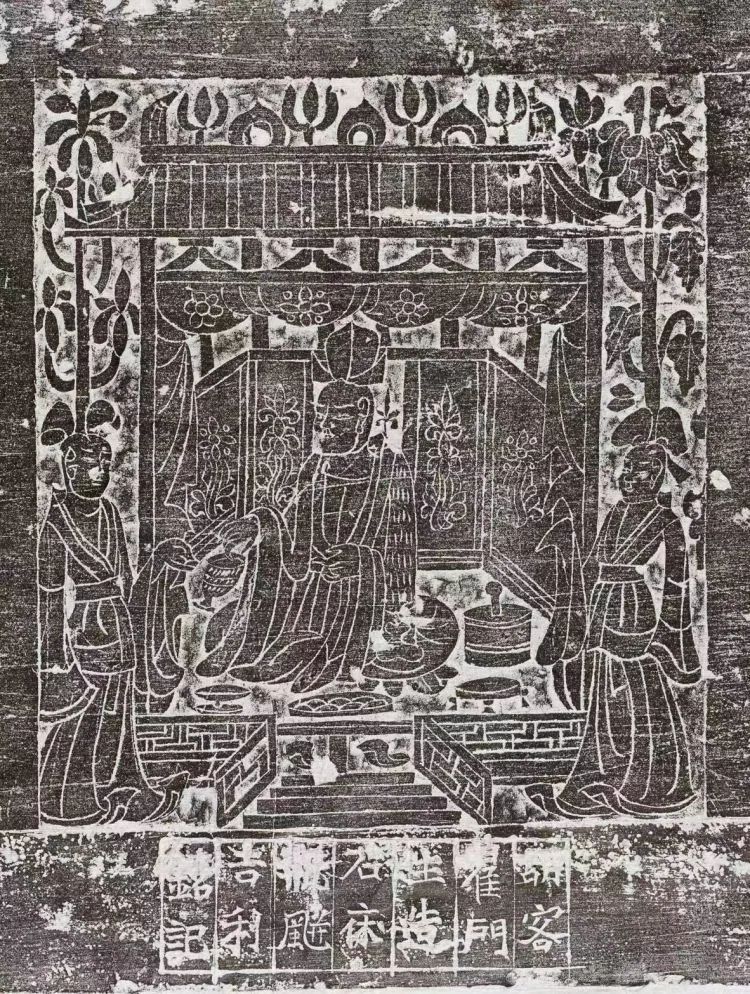 胡客
翟門
生造
石床
屏風
吉利
銘記